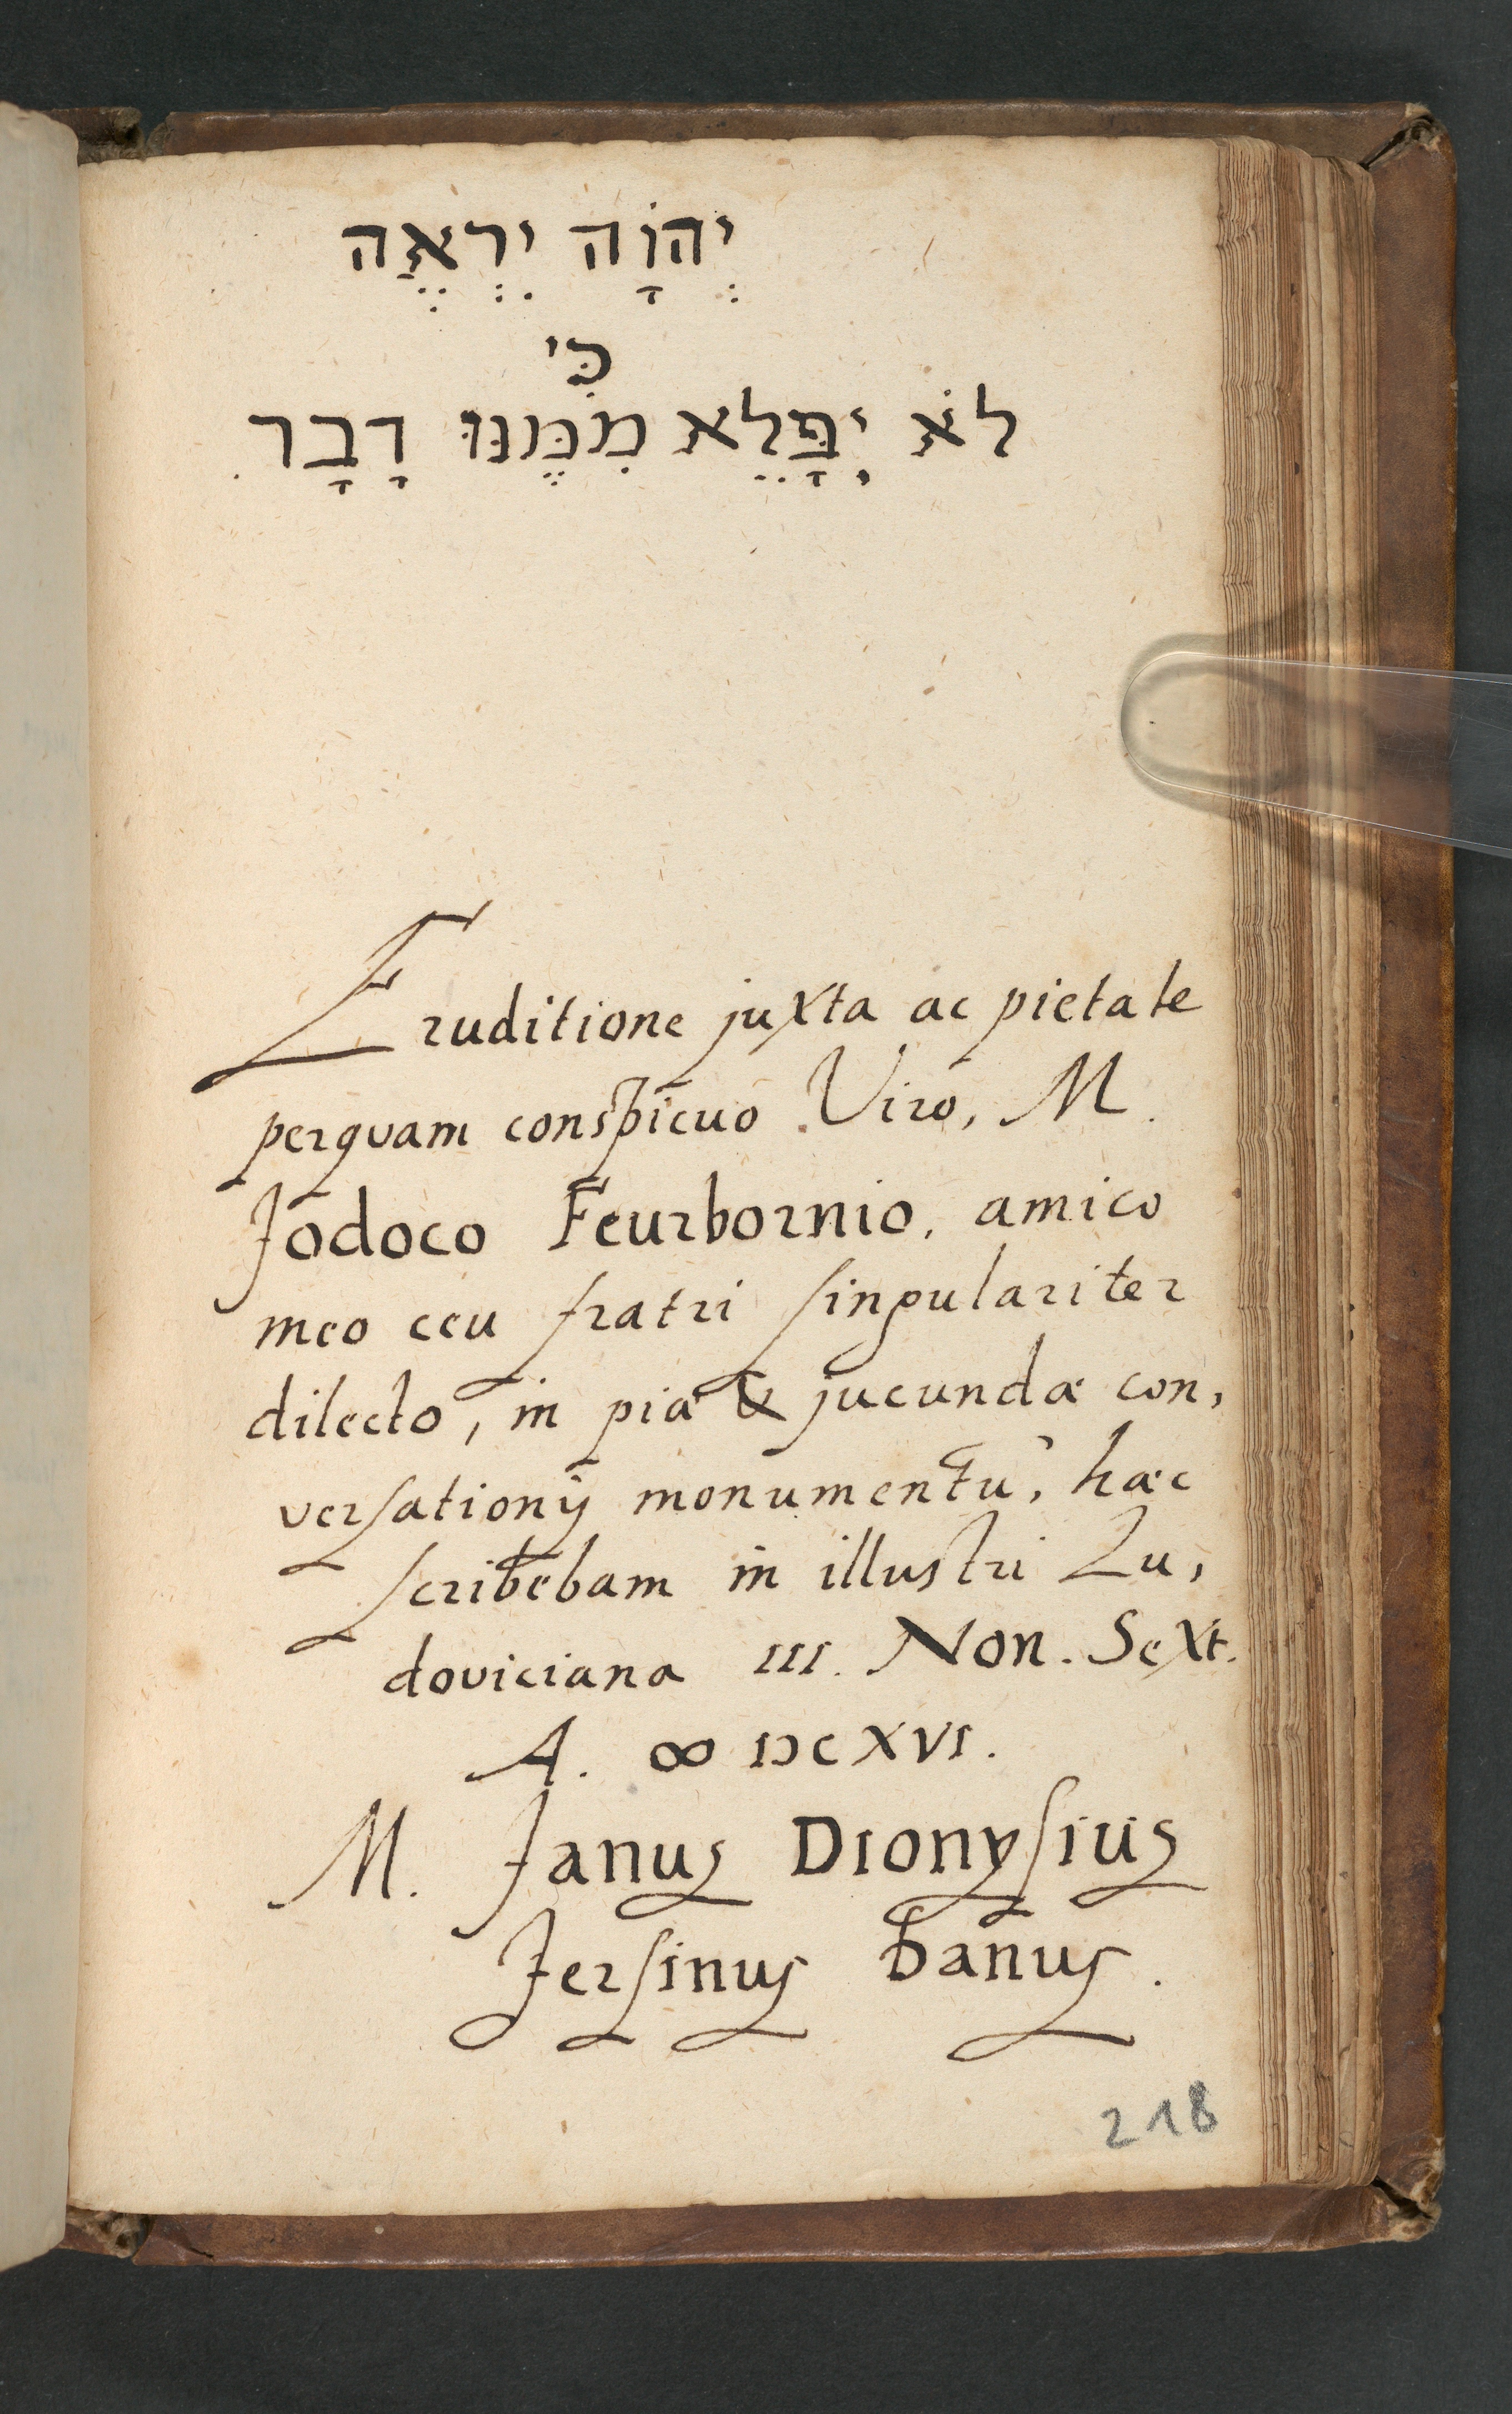 יְהוָֹה יִרְאֶה
כִּי
לֹא יִפָּלֵא מִמֶּנּוּ דָבָר
Eruditione juxta ac pietate
perquam conspicuo Viro, M.
Jodoco Feurbornio, amico
meo ceu fratri singulariter
dilecto, in piæ & jucundæ con,
versationis monumentũ, hæc
scribebam in illustri Lu,
doviciana III. Non. Sext.
A. ∞ IƆCXVI.
M. Janus Dionysius
Jersinus Danus.
218